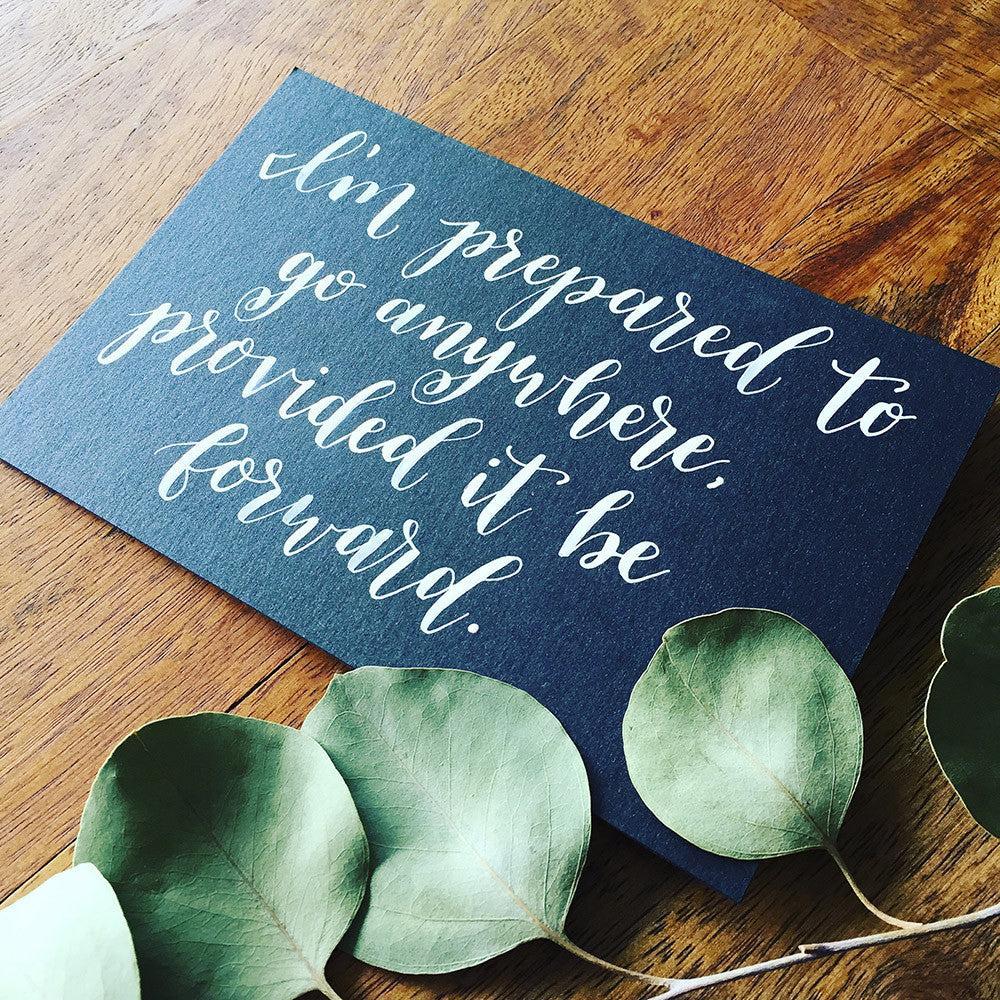 I'm prepared to
go anywhere,
provided it be
forward.